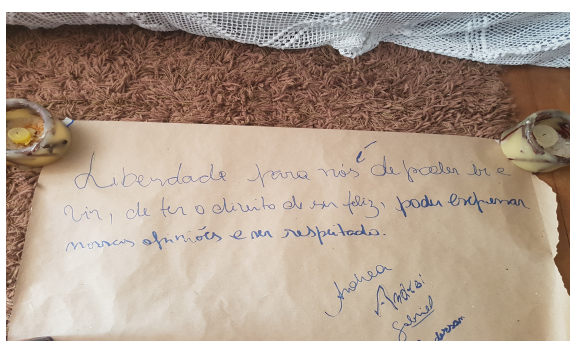 é
Liberdade para nós de poder ir e
vir, de ter o direito de ser feliz, poder expressar
nossas opiniões e ser respeitado.
Andrea
Gabriel